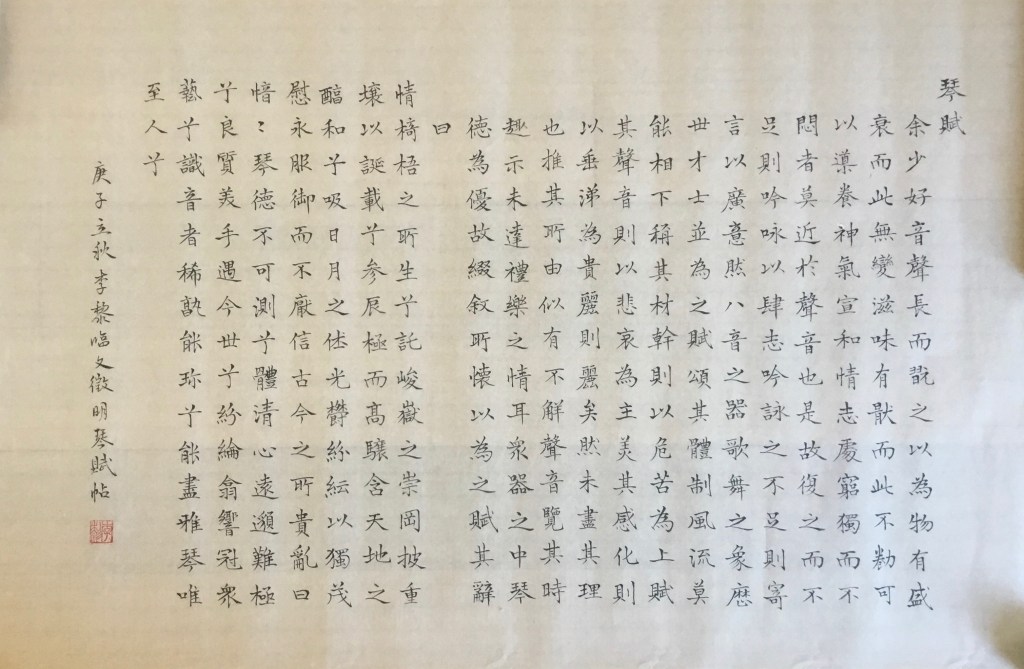 琴賦
余少好音聲長而翫之以為物有盛
衰而此無變滋味有猒而此不勌可
以導養神氣宣和情志處窮獨而不
悶者莫近於聲音也是故復之而不
足則吟咏以肆志吟詠之不足則寄
言以廣意然八音之器歌舞之象歷
世才士並為之賦頌其體制風流莫
能相下稱其材幹則以危苦為上賦
其聲音則以悲哀為主美其感化則
以垂涕為貴麗則麗矣然未盡其理
也推其所由似有不解聲音覽其時
趣示未達禮樂之情耳眾器之中琴
德為優故綴敘所懷以為之賦其辭
曰
情椅梧之所生兮託峻嶽之崇岡披重
壤以誕載兮參辰極而高驤含天地之
醕和兮吸日月之休光欝紛紜以獨茂
慰永服御而不厭信古今之所貴亂曰
愔〻琴德不可測兮體清心遠邈難極
兮良質美手遇今世兮紛綸翕響冠衆
藝兮識音者稀孰能珎兮能盡雅琴唯
至人兮
庚子立秋李黎臨文徵明琴賦帖